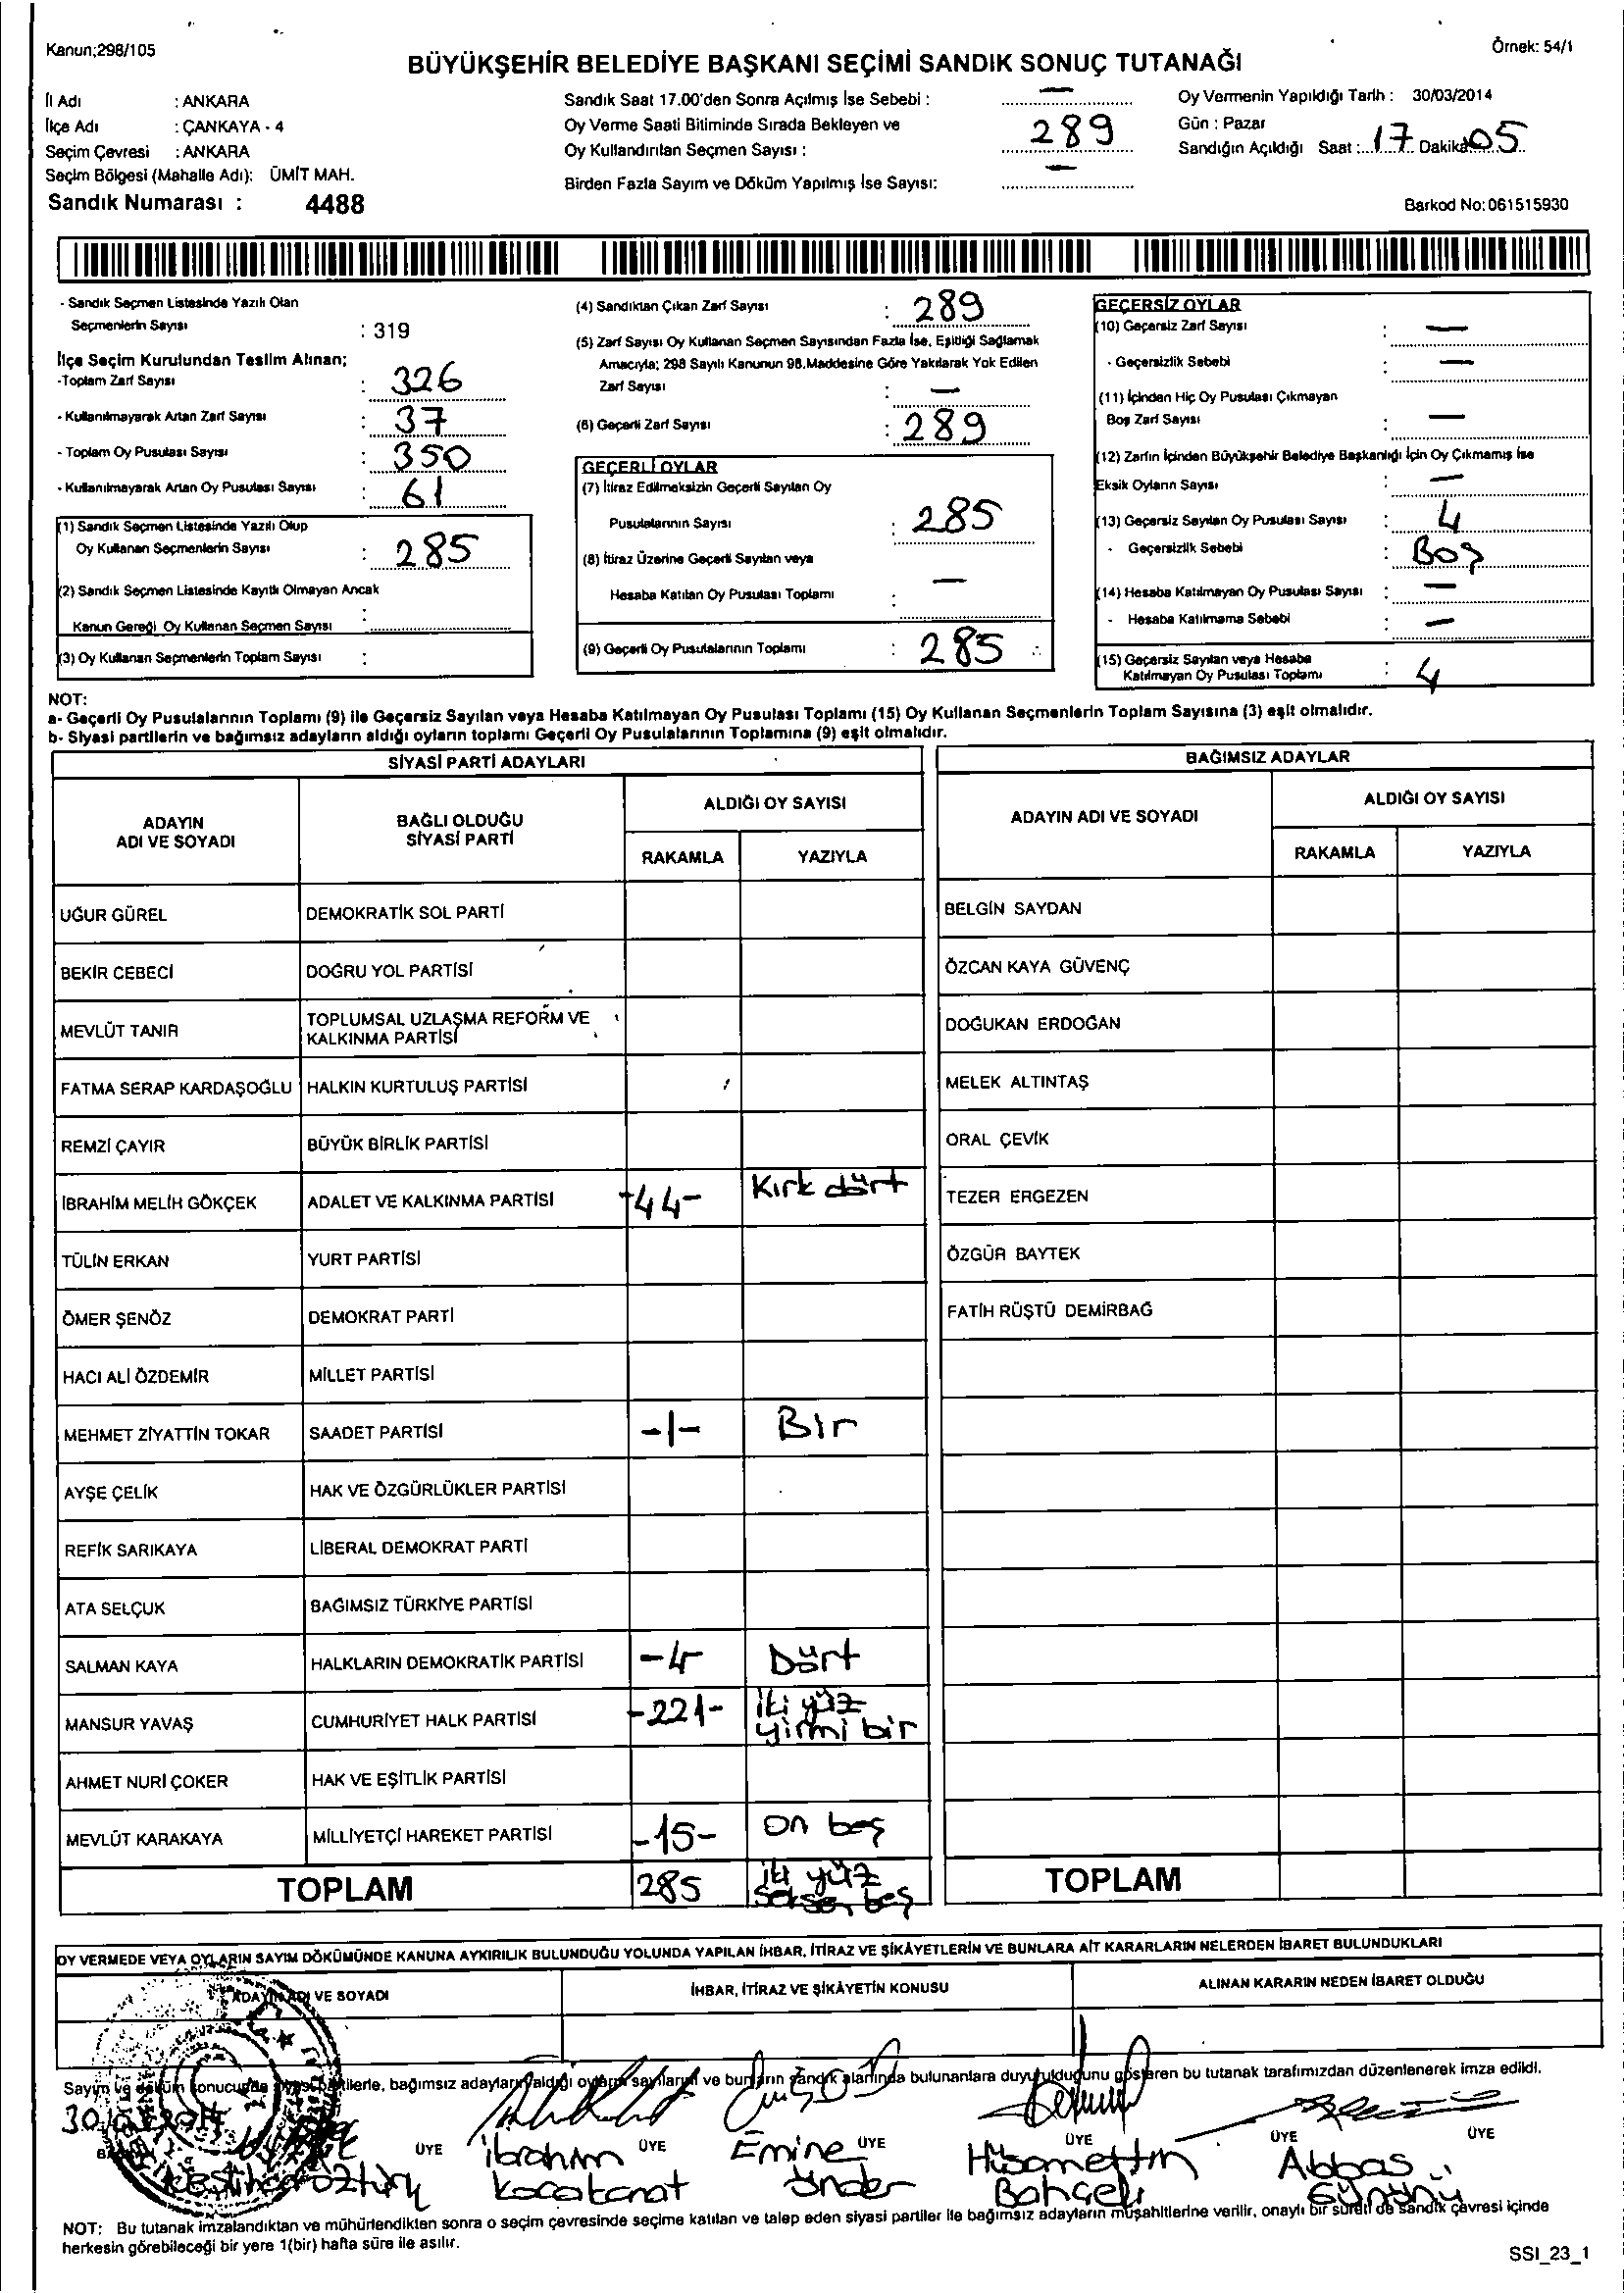 Kanun;298/105
Örnek: 54/1
BÜYÜKŞEHİR BELEDİYE BAŞKANI SEÇİMİ SANDIK SONUÇ TUTANAĞI
İl Adı : ANKARA
İlçe Adı : ÇANKAYA - 4
Seçim Çevresi : ANKARA
Seçim Bölgesi (Mahalle Adı): ÜMİT MAH.
Sandık Numarası : 4488
Sandık Saat 17.00'den Sonra Açılmış İse Sebebi : —
Oy Verme Saati Bitiminde Sırada Bekleyen ve
Oy Kullandırılan Seçmen Sayısı : 289
Birden Fazla Sayım ve Döküm Yapılmış İse Sayısı: —
Oy Vermenin Yapıldığı Tarih : 30/03/2014
Gün : Pazar
Sandığın Açıldığı Saat : 17 Dakika 05
Barkod No: 061515930
- Sandık Seçmen Listesinde Yazılı Olan
Seçmenlerin Sayısı : 319
İlçe Seçim Kurulundan Teslim Alınan;
-Toplam Zarf Sayısı : 326
- Kullanılmayarak Artan Zarf Sayısı : 37
- Toplam Oy Pusulası Sayısı : 350
- Kullanılmayarak Artan Oy Pusulası Sayısı : 61
(1) Sandık Seçmen Listesinde Yazılı Olup
Oy Kullanan Seçmenlerin Sayısı : 285
(2) Sandık Seçmen Listesinde Kayıtlı Olmayan Ancak
Kanun Gereği Oy Kullanan Seçmen Sayısı :
(3) Oy Kullanan Seçmenlerin Toplam Sayısı :
(4) Sandıktan Çıkan Zarf Sayısı : 289
(5) Zarf Sayısı Oy Kullanan Seçmen Sayısından Fazla İse, Eşitliği Sağlamak
Amacıyla; 298 Sayılı Kanunun 98.Maddesine Göre Yakılarak Yok Edilen
Zarf Sayısı : —
(6) Geçerli Zarf Sayısı : 289
GEÇERLİ OYLAR
(7) İtiraz Edilmeksizin Geçerli Sayılan Oy
Pusulalarının Sayısı : 285
(8) İtiraz Üzerine Geçerli Sayılan veya
Hesaba Katılan Oy Pusulası Toplamı : —
(9) Geçerli Oy Pusulalarının Toplamı : 285
GEÇERSİZ OYLAR
(10) Geçersiz Zarf Sayısı : —
- Geçersizlik Sebebi : —
(11) İçinden Hiç Oy Pusulası Çıkmayan
Boş Zarf Sayısı : —
(12) Zarfın İçinden Büyükşehir Belediye Başkanlığı İçin Oy Çıkmamış İse
Eksik Oyların Sayısı : —
(13) Geçersiz Sayılan Oy Pusulası Sayısı : 4
- Geçersizlik Sebebi : Boş
(14) Hesaba Katılmayan Oy Pusulası Sayısı : —
- Hesaba Katılmama Sebebi : —
(15) Geçersiz Sayılan veya Hesaba
Katılmayan Oy Pusulası Toplamı : 4
NOT:
a- Geçerli Oy Pusulalarının Toplamı (9) ile Geçersiz Sayılan veya Hesaba Katılmayan Oy Pusulası Toplamı (15) Oy Kullanan Seçmenlerin Toplam Sayısına (3) eşit olmalıdır.
b- Siyasi partilerin ve bağımsız adayların aldığı oyların toplamı Geçerli Oy Pusulalarının Toplamına (9) eşit olmalıdır.
SİYASİ PARTİ ADAYLARI
ADAYIN ADI VE SOYADI BAĞLI OLDUĞU SİYASİ PARTİ ALDIĞI OY SAYISI
RAKAMLA YAZIYLA
UĞUR GÜREL DEMOKRATİK SOL PARTİ
BEKİR CEBECİ DOĞRU YOL PARTİSİ
MEVLÜT TANIR TOPLUMSAL UZLAŞMA REFORM VE KALKINMA PARTİSİ
FATMA SERAP KARDAŞOĞLU HALKIN KURTULUŞ PARTİSİ
REMZİ ÇAYIR BÜYÜK BİRLİK PARTİSİ
İBRAHİM MELİH GÖKÇEK ADALET VE KALKINMA PARTİSİ -44- Kırk dört
TÜLİN ERKAN YURT PARTİSİ
ÖMER ŞENÖZ DEMOKRAT PARTİ
HACI ALİ ÖZDEMİR MİLLET PARTİSİ
MEHMET ZİYATTİN TOKAR SAADET PARTİSİ -1- Bir
AYŞE ÇELİK HAK VE ÖZGÜRLÜKLER PARTİSİ
REFİK SARIKAYA LİBERAL DEMOKRAT PARTİ
ATA SELÇUK BAĞIMSIZ TÜRKİYE PARTİSİ
SALMAN KAYA HALKLARIN DEMOKRATİK PARTİSİ -4- Dört
MANSUR YAVAŞ CUMHURİYET HALK PARTİSİ -221- iki yüz yirmi bir
AHMET NURİ ÇOKER HAK VE EŞİTLİK PARTİSİ
MEVLÜT KARAKAYA MİLLİYETÇİ HAREKET PARTİSİ -15- on beş
TOPLAM 285 iki yüz seksen beş
BAĞIMSIZ ADAYLAR
ADAYIN ADI VE SOYADI ALDIĞI OY SAYISI
RAKAMLA YAZIYLA
BELGİN SAYDAN
ÖZCAN KAYA GÜVENÇ
DOĞUKAN ERDOĞAN
MELEK ALTINTAŞ
ORAL ÇEVİK
TEZER ERGEZEN
ÖZGÜR BAYTEK
FATİH RÜŞTÜ DEMİRBAĞ
TOPLAM
OY VERMEDE VEYA OYLARIN SAYIM DÖKÜMÜNDE KANUNA AYKIRILIK BULUNDUĞU YOLUNDA YAPILAN İHBAR, İTİRAZ VE ŞİKÂYETLERİN VE BUNLARA AİT KARARLARIN NELERDEN İBARET BULUNDUKLARI
ADAYIN ADI VE SOYADI İHBAR, İTİRAZ VE ŞİKÂYETİN KONUSU ALINAN KARARIN NEDEN İBARET OLDUĞU
Sayım ve döküm sonucunda siyasi partilerle, bağımsız adayların aldığı oyların sayılarını ve bunların sandık alanında bulunanlara duyurulduğunu gösteren bu tutanak tarafımızdan düzenlenerek imza edildi.
ÜYE ÜYE ÜYE ÜYE ÜYE ÜYE
öztürk
İbrahim Kocakanat
Emine Önder
Hüsamettin Bahçeli
Abbas
NOT: Bu tutanak imzalandıktan ve mühürlendikten sonra o seçim çevresinde seçime katılan ve talep eden siyasi partiler ile bağımsız adayların müşahitlerine verilir, onaylı bir sureti de sandık çevresi içinde
herkesin görebileceği bir yere 1(bir) hafta süre ile asılır.
SSI_23_1